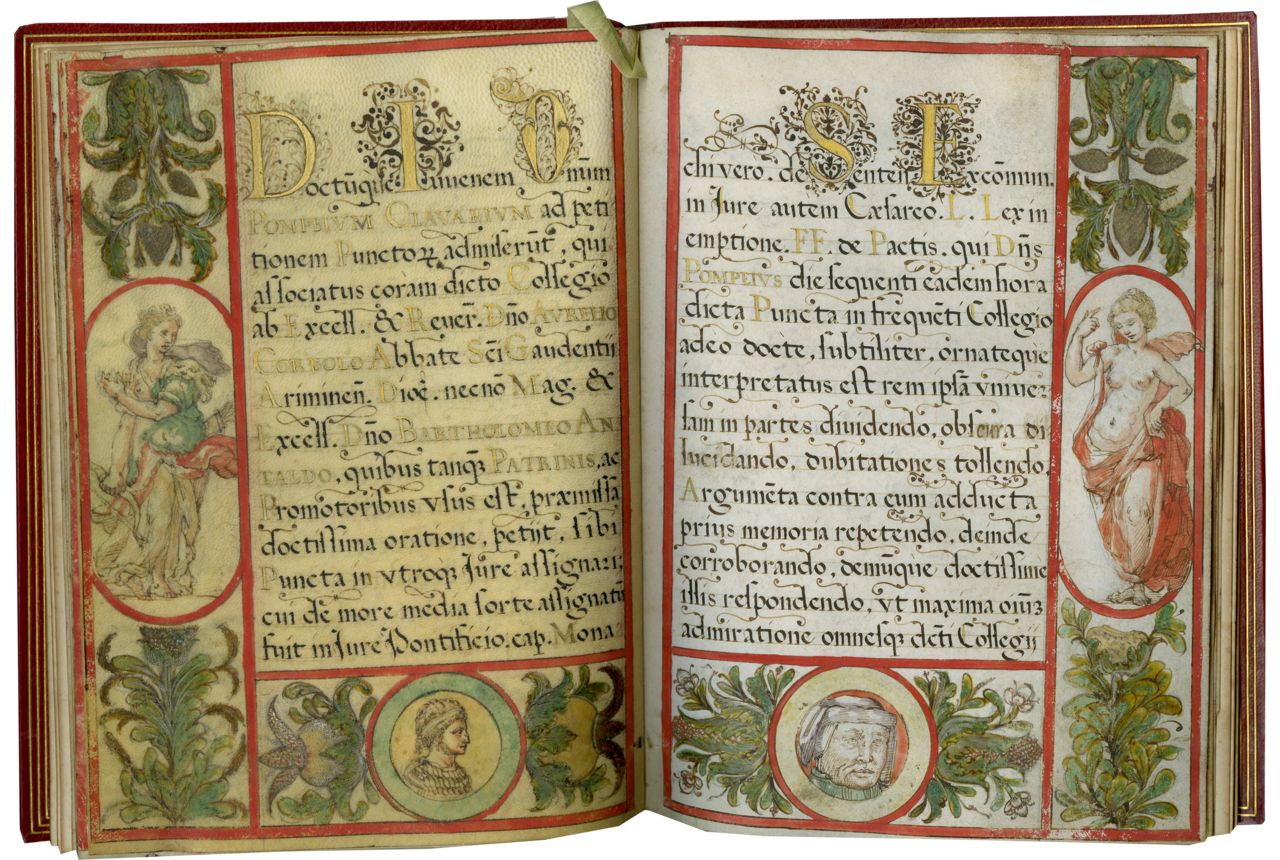 Doctūque Iuvenem Dnūm
POMPEIVM CLAVARIVM ad peti
tionem Punctoꝝ admiserūt, qui
associatus coram dicto Collegio
ab Excell. & Rever. Dn̄o AVRELIO
CORBOLO Abbate Scī Gaudentii
Ariminēn. Dioē. necnō Mag. &
Excell. Dn̄o BARTHOLOMEO ANI
TALDO, quibus tanqȝ PATRINIS, ac
Promotoribus vsus est, præmissa
doctissima oratione, petijt, sibi
Puncta in vtroqȝ Jure assignari;
cui de more media sorte assignatū
fuit in Jure Pontificio. cap. Mona
chi vero. de Senten Excōmun.
in Jure autem Cæsareo. L. Lex in
emptione. FF. de Pactis. qui Dn̄s
POMPEIVS die sequenti eadem hora
dicta Puncta in frequēti Collegio
adeo docte, subtiliter, ornateque
interpretatus est rem ipsā vniver
sam in partes dividendo, obscura di
lucidando, dubitationes tollendo,
Argumēta contra eum adducta
prius memoria repetendo, deinde
corroborando, demūque doctissime
illis respondendo, vt maxima oīuȝ
admiratione omnesqȝ dc̄ti Collegij